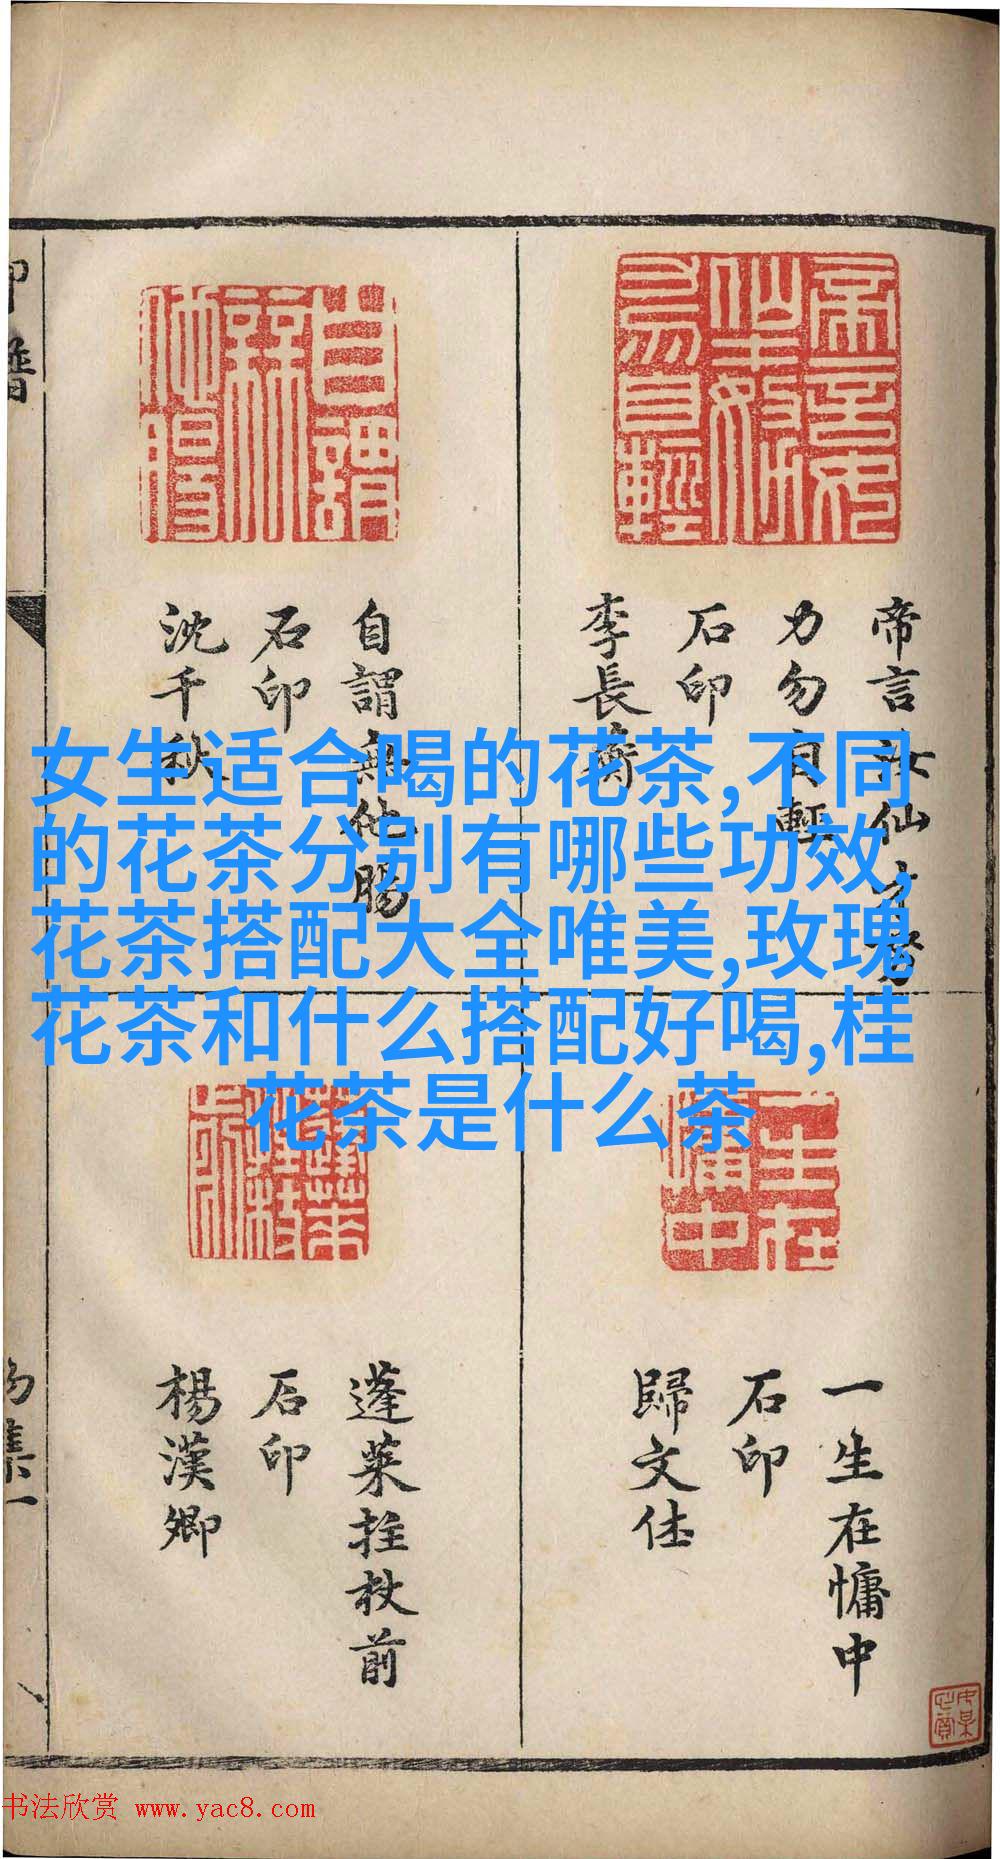 女生适合喝的花茶,不同
的花茶分别有哪些功效,
花茶搭配大全唯美,玫瑰
花茶和什么搭配好喝,桂
花茶是什么茶
帝言汝仙才努
力勿自輕
石印
李長蘅
自謂無他腸
石印
沈千秋
一生在慵中
石印
歸文休
蓬萊拄杖前
石印
楊漢卿
印譜
集一
书法欣赏 www.yac8.com